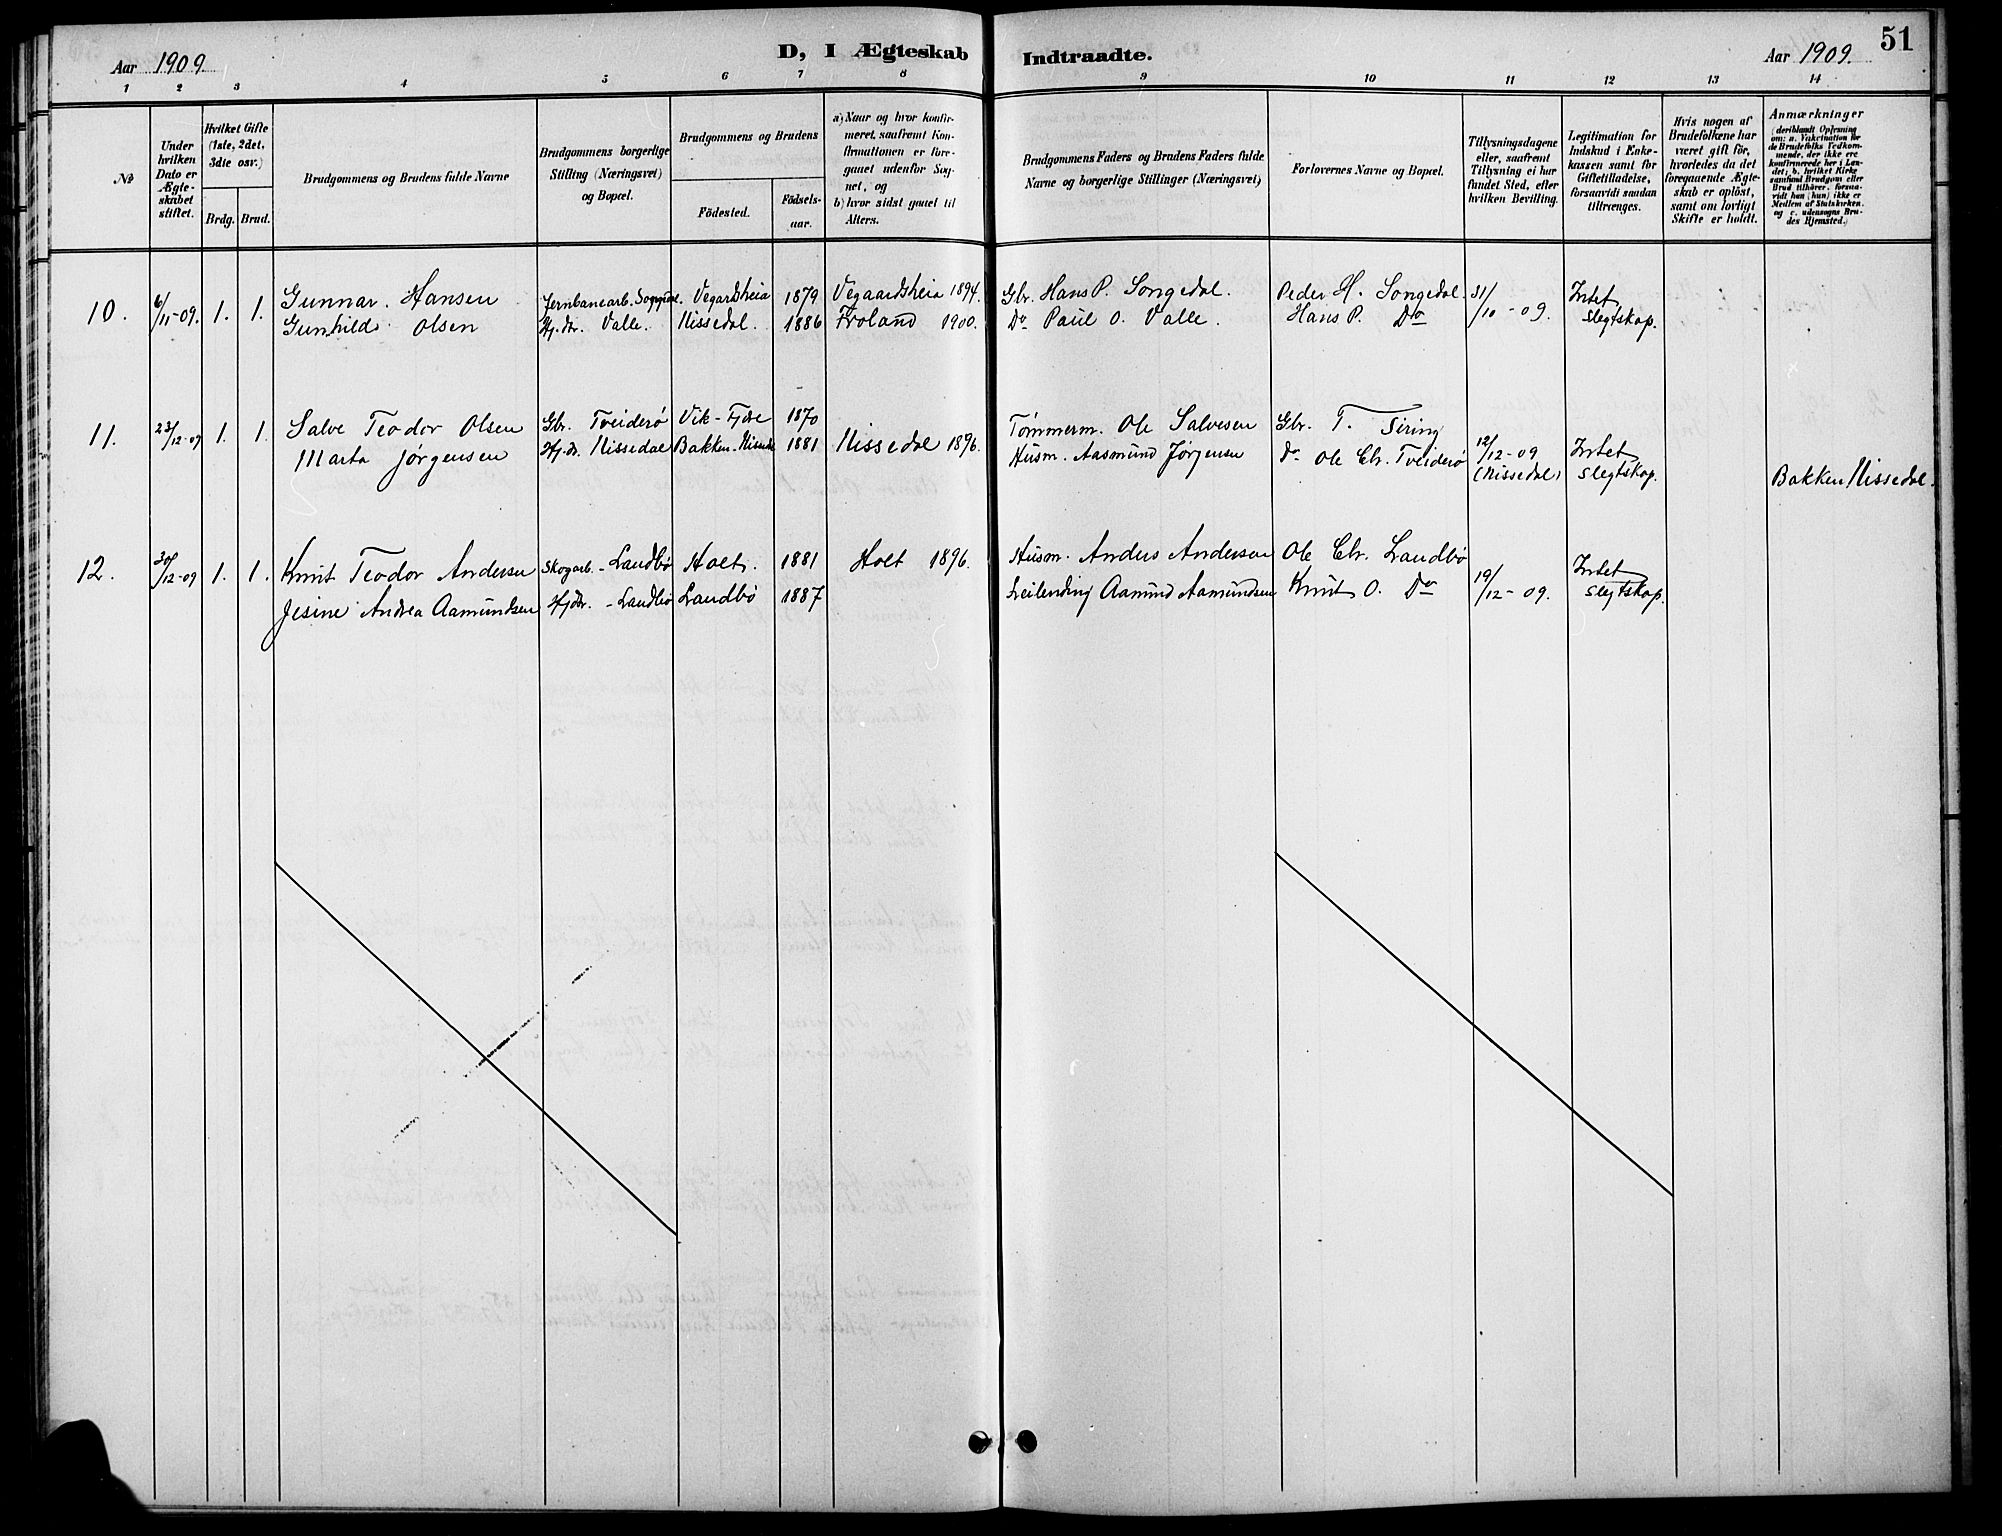 51
Aar 1909.
D, I Ægteskab
Indtraadte.
Aar 1909.
1 2 3 4 5 6 7 8 9 10 11 12 13 14
No
Under hvilken Dato er Ægteskabet stiftet.
Hvilket Gifte (1ste, 2det, 3die osv.)
Brdg. Brud.
Brudgommens og Brudens fulde Navne
Brudgommens borgerlige Stilling (Næringsvei) og Bopæl.
Brudgommens og Brudens
Födested.
Födsels-aar.
a) Naar og hvor konfirmeret, saafremt Konfirmationen er foregaaet udenfor Sognet, og
b) hvor sidst gaaet til Alters.
Brudgommens Faders og Brudens Faders fulde Navne og borgerlige Stillinger (Næringsvei)
Forlovernes Navne og Bopæl.
Tillysningsdagene eller, saafremt Tillysning ei har fundet Sted, efter hvilken Bevilling.
Legitimation for Indskud i Enkekassen samt for Giftetilladelse, forsaavidt saadan tiltrænges.
Hvis nogen af Brudefolkene har været gift för, hvorledes da det foregaaende Ægteskab er oplöst, samt om lovligt Skifte er holdt.
Anmærkninger (deriblandt Oplysning om: a. Vakcination for de Brudefolks Vedkommende, der ikke ere konfirmerede her i Landet; b. hvilket Kirkesamfund Brudgom eller Brud tilhörer, forsaavidt han (hun) ikke er Medlem af Statskirken. og c. udensogns Brudes Hjemsted.)
10. 6/11-09. 1. 1. Gunnar Hansen Jernbanearb. Vegardsheia 1879 Vegaardsheia 1894. Gbr. Hans P. Songedal. Peder H. Songedal. 31/10-09. Intet Slegtskap.
Gunhild Olsen Hj.dr. Valle. Nissedal. 1886 Froland 1900. Do Paul O. Valle. Hans P. Do
11. 23/12-09 1. 1. Salve Teodor Olsen Gbr. Tveiderø Vik - Fjære 1870 Nissedal 1896. Tømmerm. Ole Salvesen Gbr. T. Siring 12/12-09 (Nissedal) Intet Slegtskap.
Marta Jørgensen Hj.dr. Nissedal Bakken - Nissedal 1881 Husm. Aasmund Jørgensen Do Ole Chr. Tveiderø Bakken Nissedal.
12. 30/12-09 1. 1. Knut Teodor Andersen Skogarb. - Landbø Holt. 1881 Holt 1896. Husm. Anders Andersen Ole Chr. Landbø 19/12-09. Intet Slegtskap.
Jesine Andrea Aamundsen Hjdr. - Landbø Landbø 1887 Leilending Aamund Aamundsen Knut O. Do